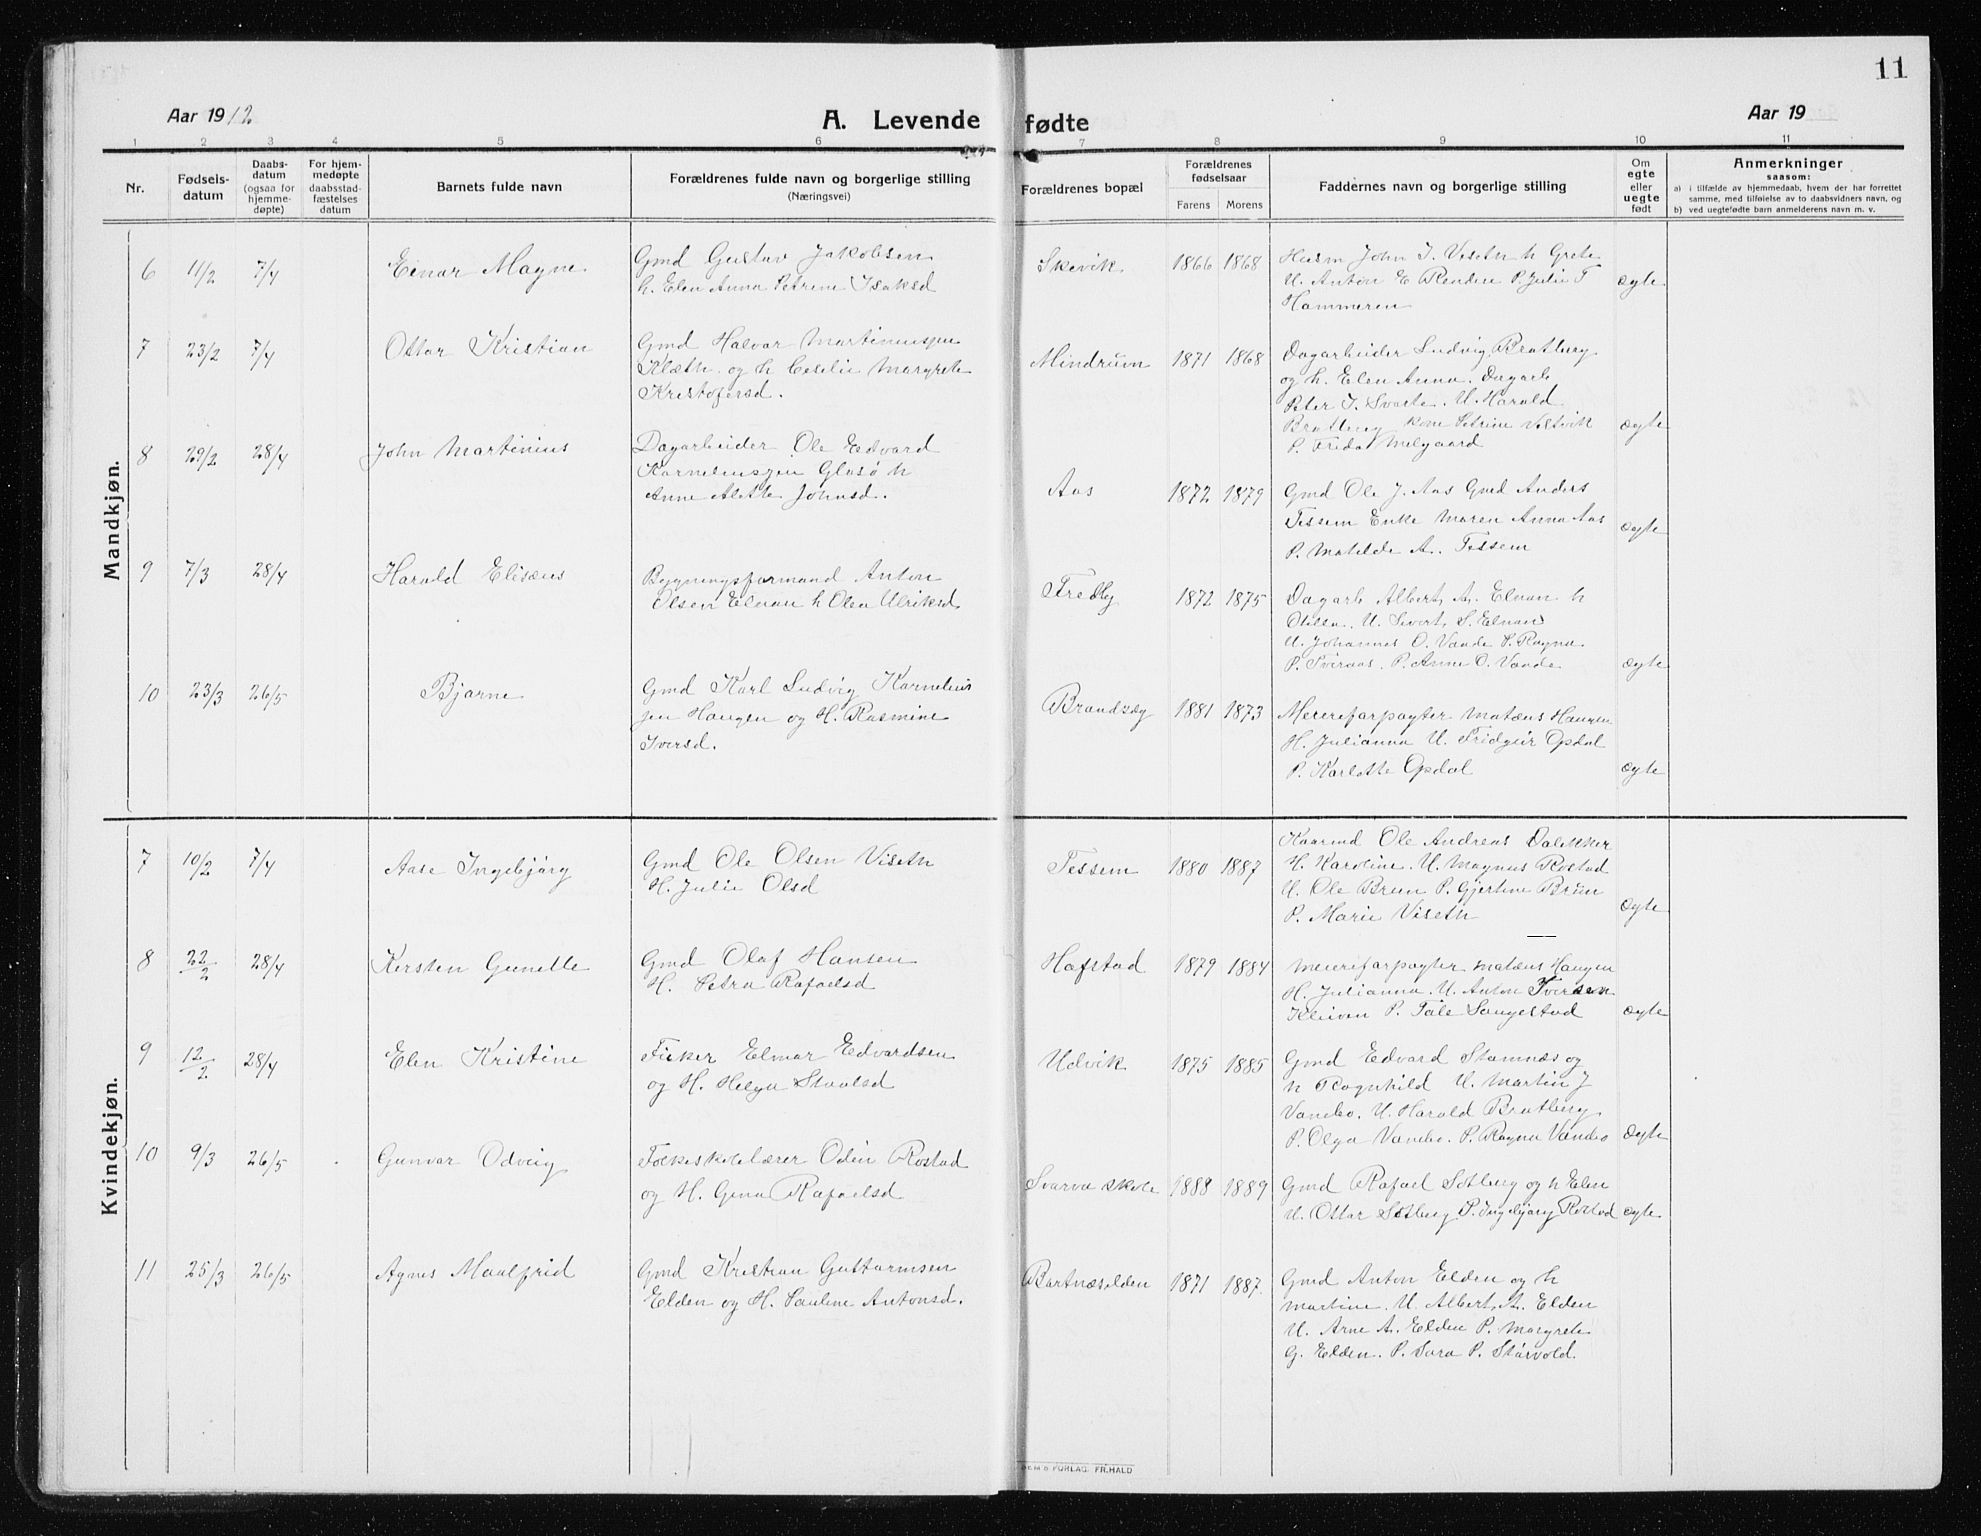 11
Aar 1912
A. Levende fødte
Aar 19
1 2 3 4 5 6 7 8 9 10 11
Nr.
Fødsels-
datum
Daabs-
datum
(ogsaa for
hjemme-
døpte)
For hjem-
medøpte
daabsstad-
fæstelses
datum
Barnets fulde navn
Forældrenes fulde navn og borgerlige stilling
(Næringsvei)
Forældrenes bopæl
Forældrenes
fødselsaar
Farens Morens
Faddernes navn og borgerlige stilling
Om
egte
eller
uegte
født
Anmerkninger
saasom:
a) i tilfælde av hjemmedaab, hvem der har forrettet
samme, med tilføielse av to daabsvidners navn, og
b) ved uegtefødte barn anmelderens navn m. v.
Mandkjøn.
6 11/2 7/4 Einar Magne
Gmd Gustav Jakobsen
h. Elen Anna Petrine Isaksd
Skevik 1866 1868
Husm John J. Viseth h Grete
U. Anton E Rendese P. Julie T
Hammeren
ægte
7 23/2 7/4 Ottar Kristian
Gmd Halvar Martinussen
Klæth og h Cesilie Margrete
Kristofersd.
Mindrum 1871 1868
Dagarbeider Ludvig Bratberg
og h. Elen Anna. Dagarb
Peter J. Svarte. U. Harald
Bratberg kone Petrine Vestvik
P. Frida Melgaard
ægte
8 29/2 28/4 John Martinius
Dagarbeider Ole Edvard
Karneliussen Glasø h
Anne Alette Johnsd.
Aas 1872 1879
Gmd Ole J. Aas Gmd Anders
Tessem Enke Maren Anna Aas
P. Matilde A. Tessem
ægte
9 7/3 28/4 Harald Elisæus
Bygningsformand Anton
Olsen Elnan h Olea Ulriksd
Fredly 1872 1875
Dagarb Albert A. Elnan h
Otilia. U. Sivert S. Elnan
U. Johannes O. Vande P. Ragna
P. Sviraas. P. Anne O. Vande
ægte
10 23/3 26/5 Bjarne
Gmd Karl Ludvig Karnelius
sen Haugen og H. Rasmine
Iversd.
Brandsæg 1881 1873
Meierieforpagter Matæus Haugen
H. Julianna U. Fridgeir Opdal
P. Karlotte Opdal
ægte
Kvindekjøn.
7 10/2 7/4 Aase Ingebjørg
Gmd Ole Olsen Viseth
H. Julie Olsd
Tessem 1880 1887
Kaarmd Ole Andreas Dalekker
H. Karoline. U. Magnus Rostad
U. Ole Brun P. Gjertine Brun
P. Marie Viseth
ægte
8 22/2 28/4 Kersten Gunelle
Gmd Olaf Hansen
H. Petra Rafaelsd
Hafstad 1879 1884
Meieriforpagter Matæus Haugen
H. Julianna. U. Anton Iversen
Kleiven P. Tale Saugestad
ægte
9 12/2 28/4 Elen Kristine
Fisker Elmar Edvardsen
og H. Helga Staalsd
Udvik 1875 1885
Gmd Edvard Stamnæs og
h Ragnhild U. Martin J
Vanebo. U. Harald Bratberg
P. Olga Vanebo. P. Ragna Vanebo
ægte
10 9/3 26/5 Gunvar Odveig
Folkeskolelærer Odin Rostad
og H. Gina Rafaelsd
Svarva skole 1888 1889
Gmd Rafael Solberg og h Elen
U. Ottar Solberg P. Ingebjørg Rostad
ægte
11 25/3 26/5 Agnes Maalfrid
Gmd Kristian Guttormsen
Elden og H. Pauline Antonsd.
Bartnæselden 1871 1887.
Gmd Anton Elden og h
Martine. U. Albert A. Elden
U. Arne A. Elden P. Margrete
G. Elden. P. Sara P. Størvold.
FORLAG. FR.HALD